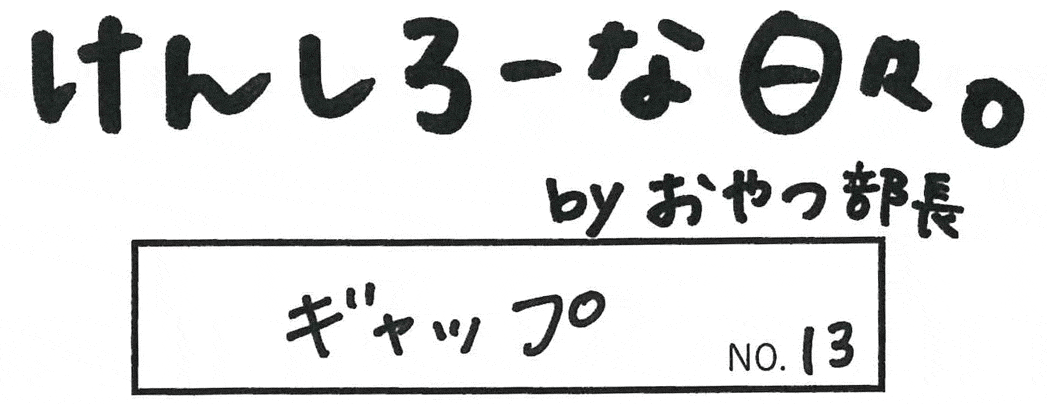 けんしろーな日々。
by おやつ部長
ギャップ
NO. 13